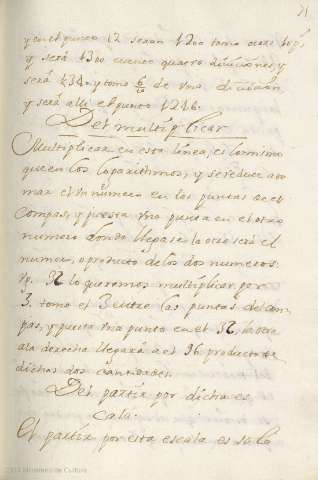 71
y en el punto 12 seran 1200 tomo otras
y será 1300 cuento quatro divisiones, y
será 134. y tomo 6/10 de una division
y será alli el punto 1246.
Del multiplicar
Multiplicar en esta linea, es lo mismo
que en los logarithmos, y se reduce a to
mar el un numero en las puntas de el
compas, y puesta una punta en el otro
numero donde llegase la otra será el
numero, o producto de los dos numeros:
Vg. 32 lo queremos multiplicar por
3. tomo el 3 entre las puntas del com
pas, y puesta una punta en el 32, la otra
a la derecha llegará a el 96. producto de
dichas dos cantidades.
Del partir por dicha es
cala.
El partir por esta escala es sola
2013 Ministerio de Cultura